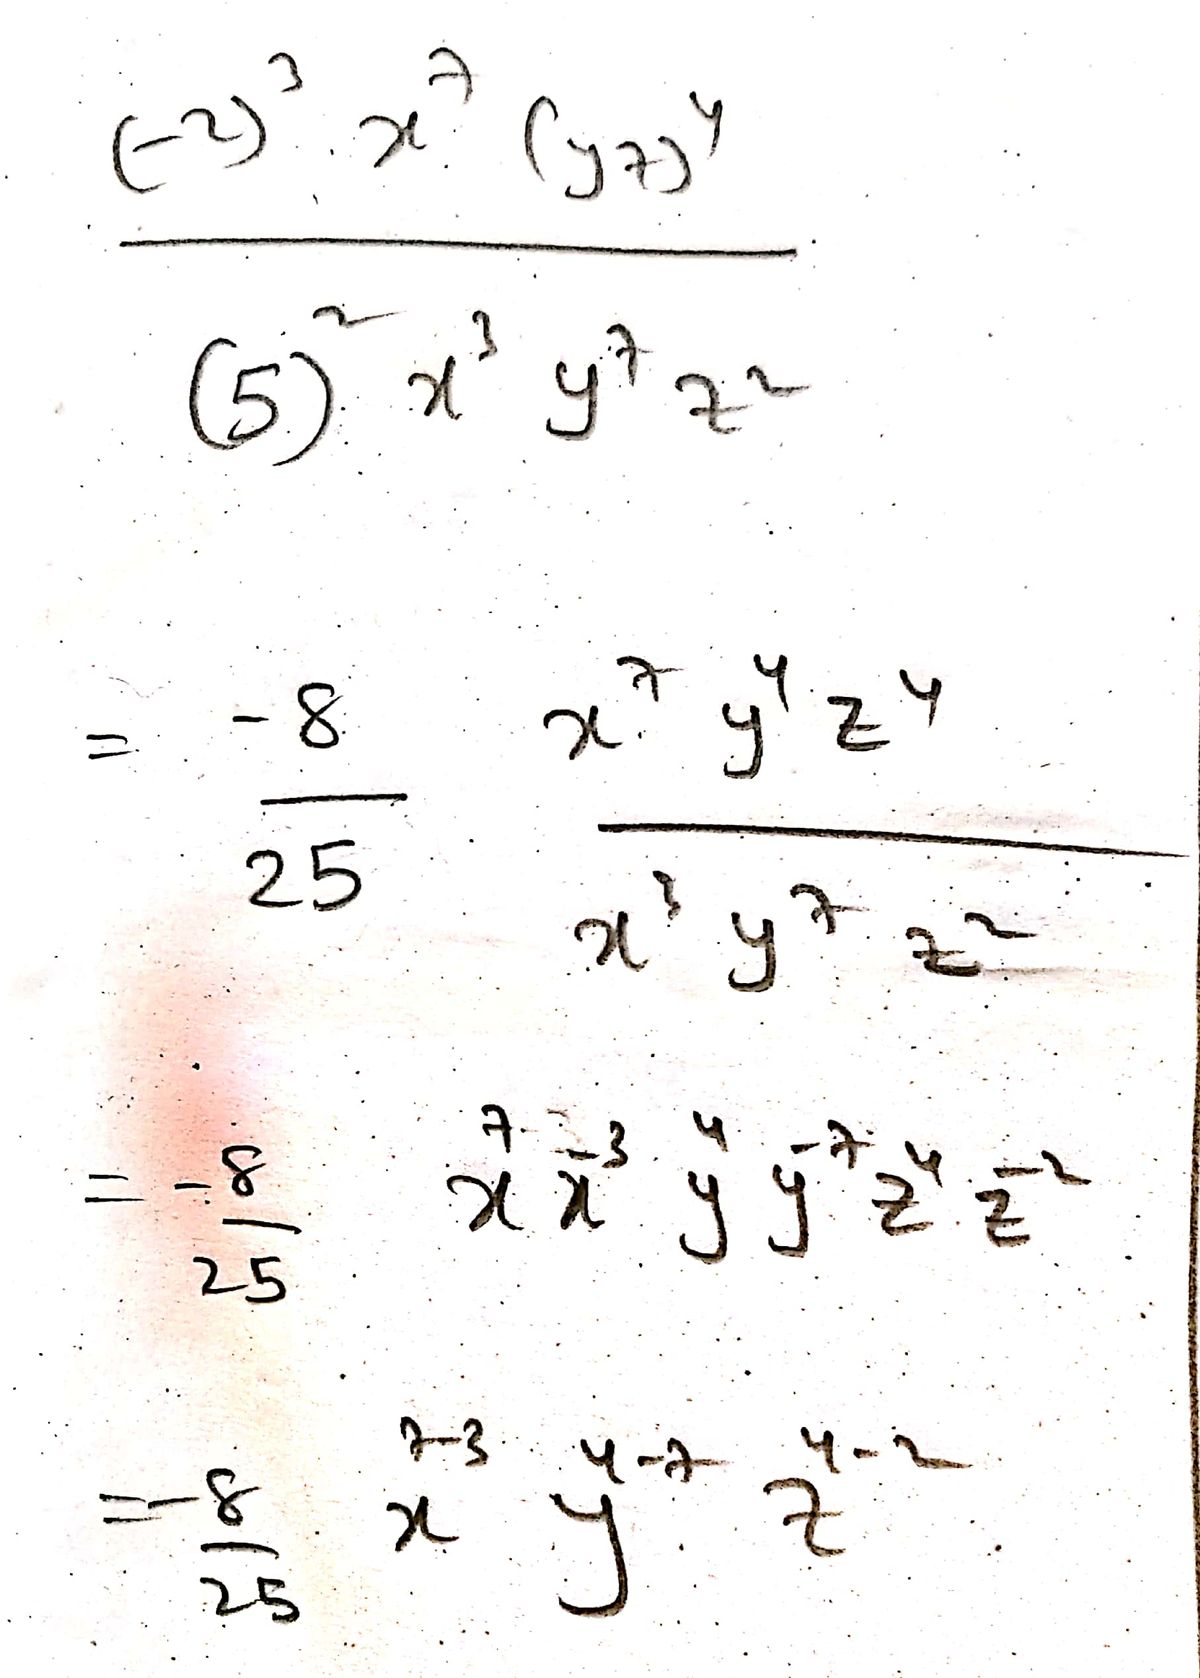 (-2)³ x⁷ (yz)⁴
(5)² x³ y⁷ z²
= -8/25 x⁷ y⁴ z⁴ / x³ y⁷ z²
= -8/25 x⁷ x⁻³ y⁴ y⁻⁷ z⁴ z⁻²
= -8/25 x⁷⁻³ y⁴⁻⁷ z⁴⁻²